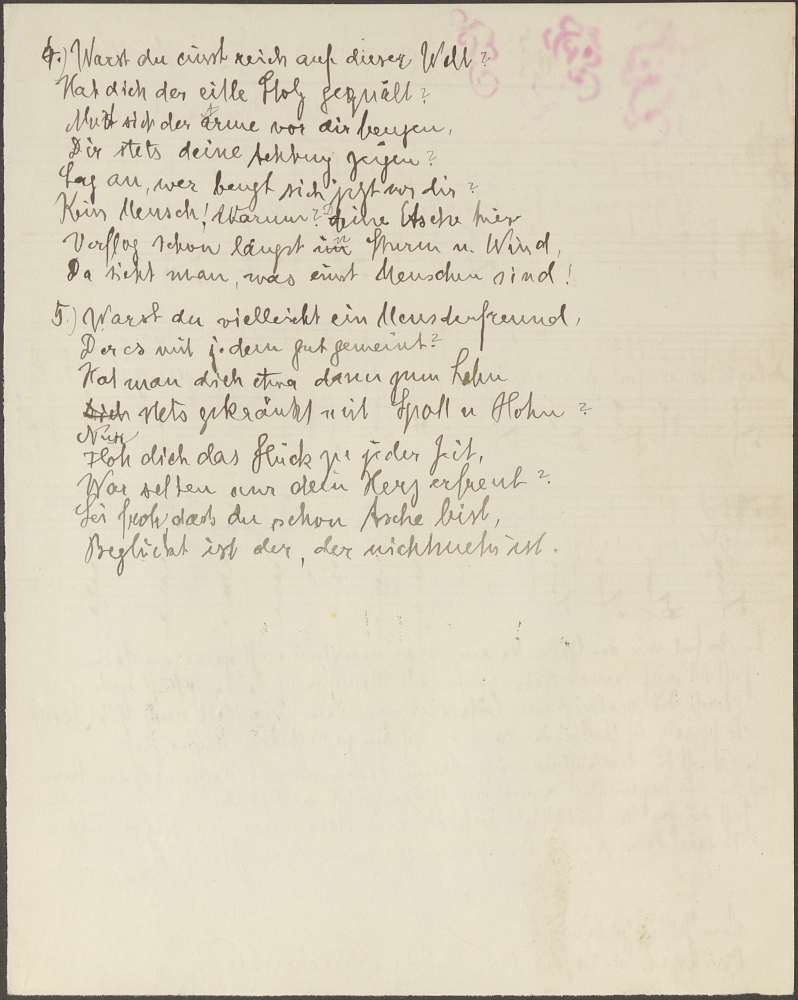 4.) Warst du einst reich auf dieser Welt?
Hat dich der eitle Stolz gequält?
Mußt sich der arme vor dir beugen,
Dir stets deine Achtung zeigen?
Sag an, wer beugt sich jetzt vor dir?
Kein Mensch! Warum? Deine Asche hier
Verflog schon längst in Sturm u. Wind,
Da sieht man, was einst Menschen sind!
5.) Warst du vielleicht ein Menschenfreund,
Der es mit jedem gut gemeint?
Hat man dich etwa dann zum Lohn
Dich stets gekränkt mit Spott u Hohn?
Nun
Floh dich das Glück zu jeder Zeit,
War selten nur dein Herz erfreut?
Sei froh, dass du schon Asche bist,
Beglückt ist der, der nicht mehr ist.